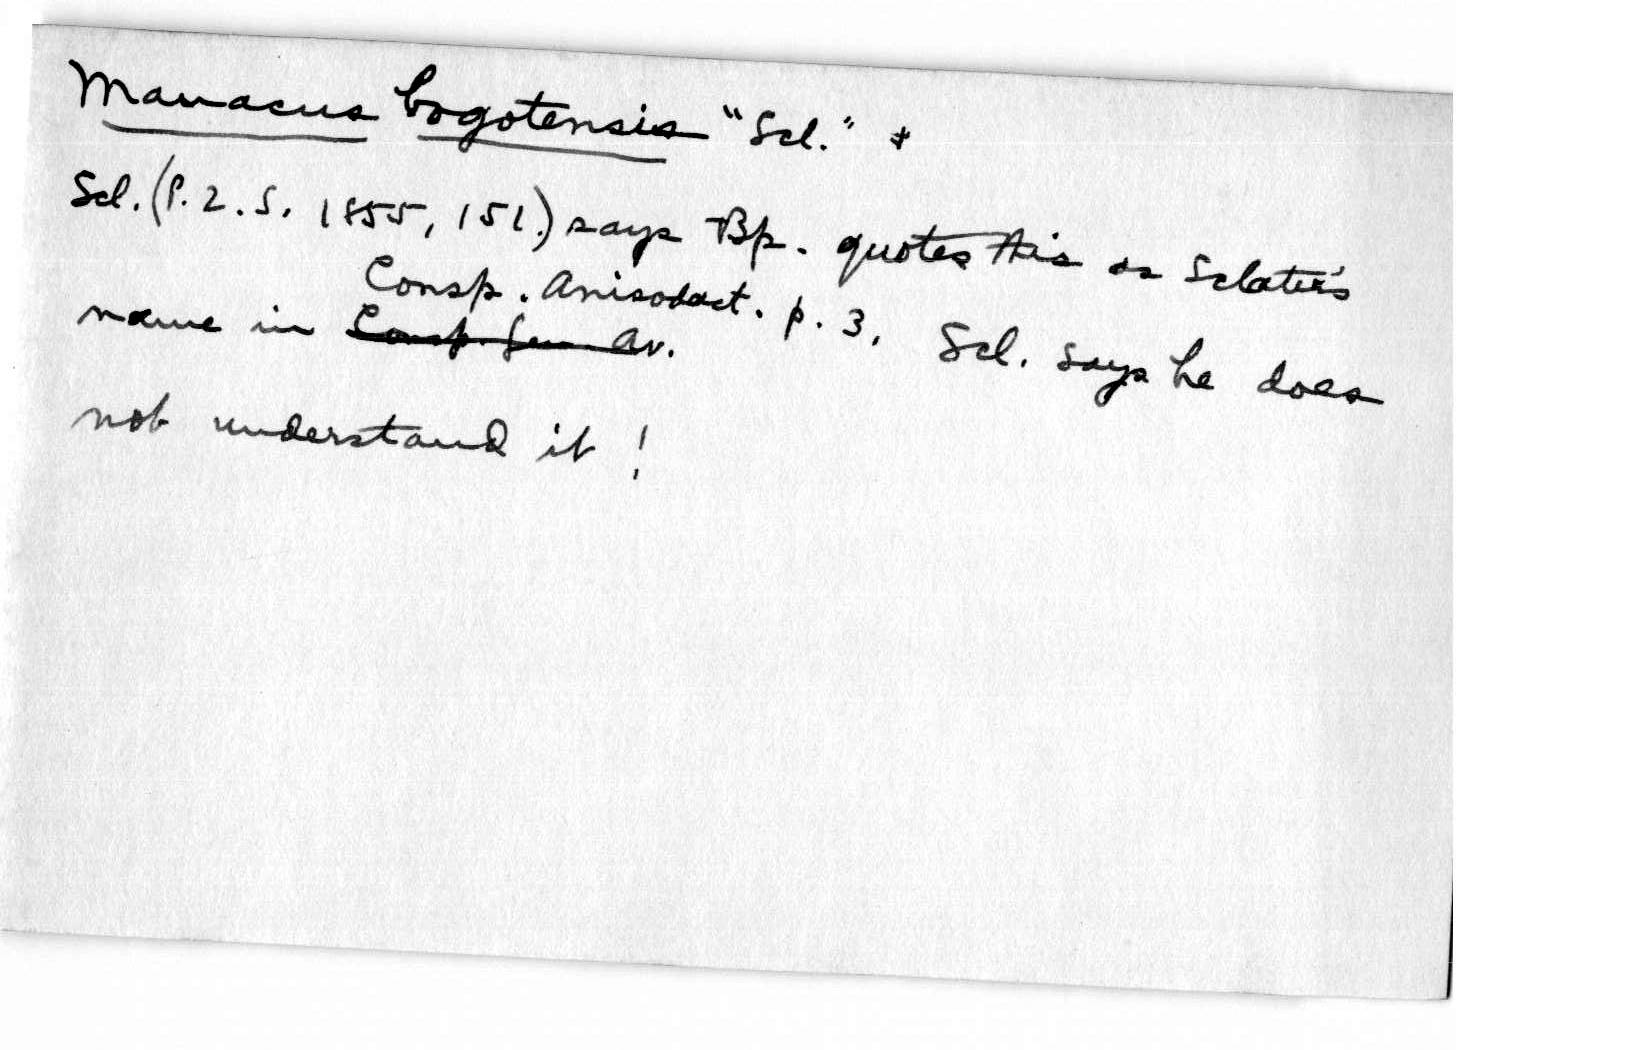 Manacus bogotensis "Scl." *
Scl. (P.Z.S. 1855, 151.) says Bp. quotes this as Sclater's
Consp. Anisodact. p. 3. Scl. says he does
name in Consp. Gen. Av.
not understand it!